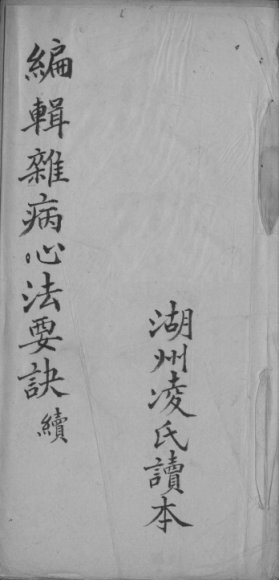 湖州凌氏讀本
編輯雜病心法要訣續